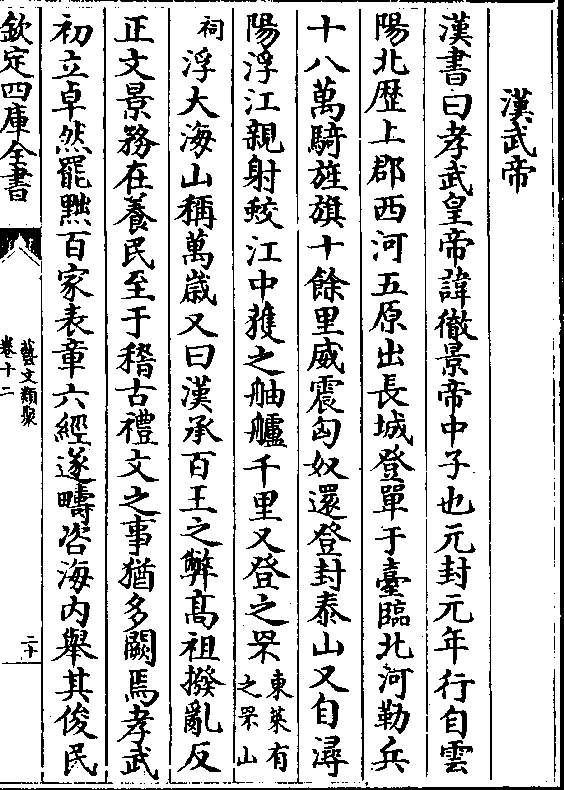 漢武帝
漢書曰孝武皇帝諱徹景帝中子也元封元年行自雲
陽北歴上郡西河五原出長城登單于臺臨北河勒兵
十八萬騎旌旗十餘里威震匈奴還登封泰山又自潯
陽浮江親射蛟江中獲之舳艫千里又登之罘東萊有之罘山
祠浮大海山稱萬嵗又曰漢承百王之弊髙祖撥亂反
正文景務在養民至于稽古禮文之事猶多闕焉孝武
初立卓然罷黜百家表章六經遂疇咨海内舉其俊民
欽定四庫全書
藝文類聚
卷十二
二十